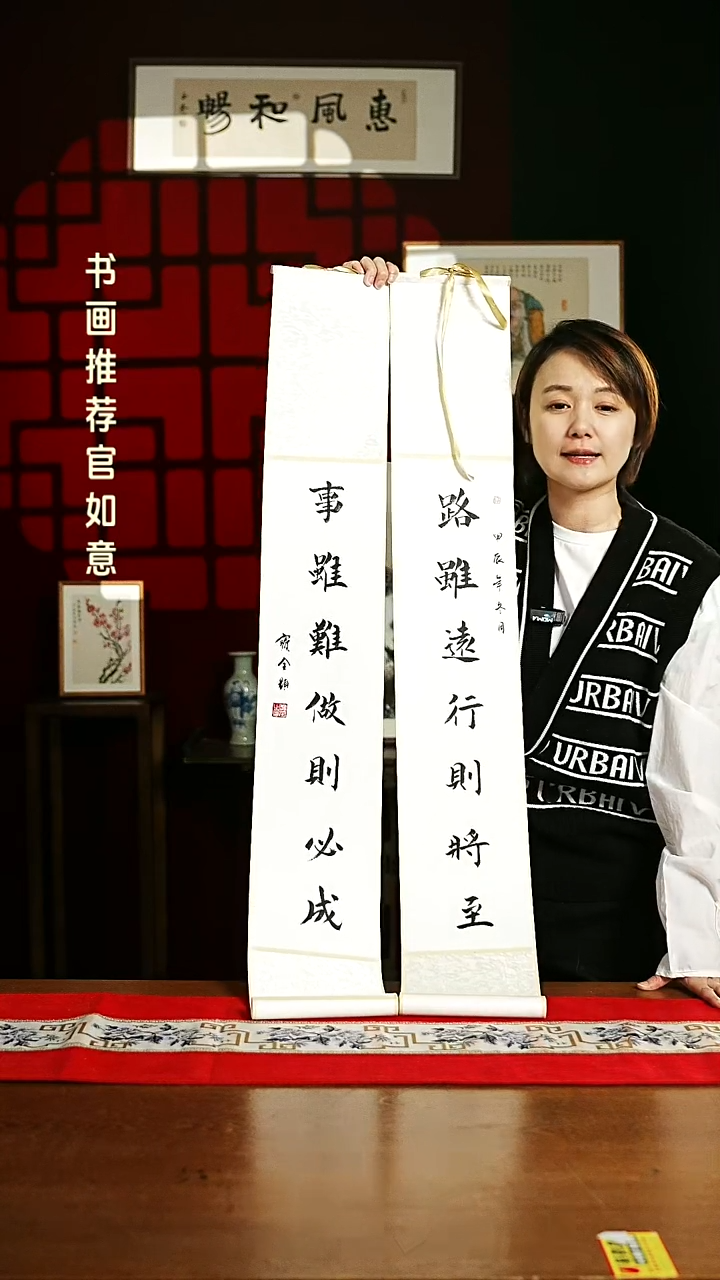 惠風和暢
书画推荐官如意
路雖遠行則將至
甲辰年冬月
事雖難做則必成
URBAN
URBAN
URBAN
URBAN